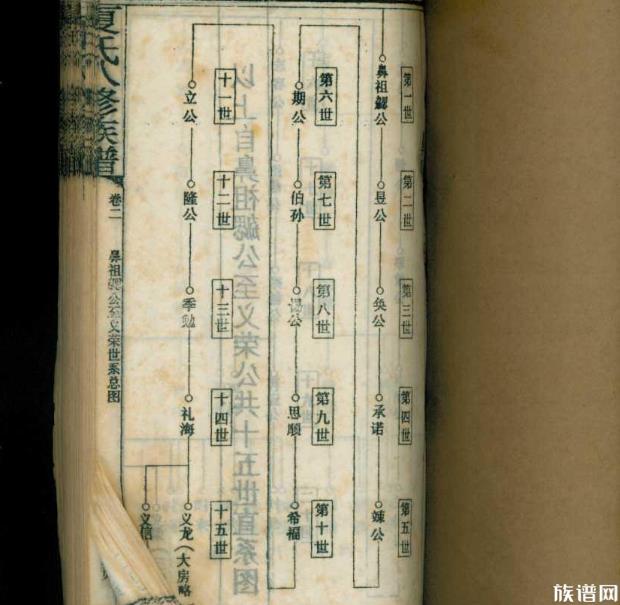 第一世
鼻祖勰公
第二世
昱公
第三世
奂公
第四世
承诺
第五世
竦公
第六世
期公
第七世
伯孙
第八世
公
第九世
思顺
第十世
希福
十一世
立公
十二世
隆公
十三世
季勉
十四世
礼海
十五世
义龙（大房略
义信
以上自鼻祖勰公至义荣公共十五世直系图
夏氏八修族谱
卷二
鼻祖勰公至义荣世系总图
族谱网